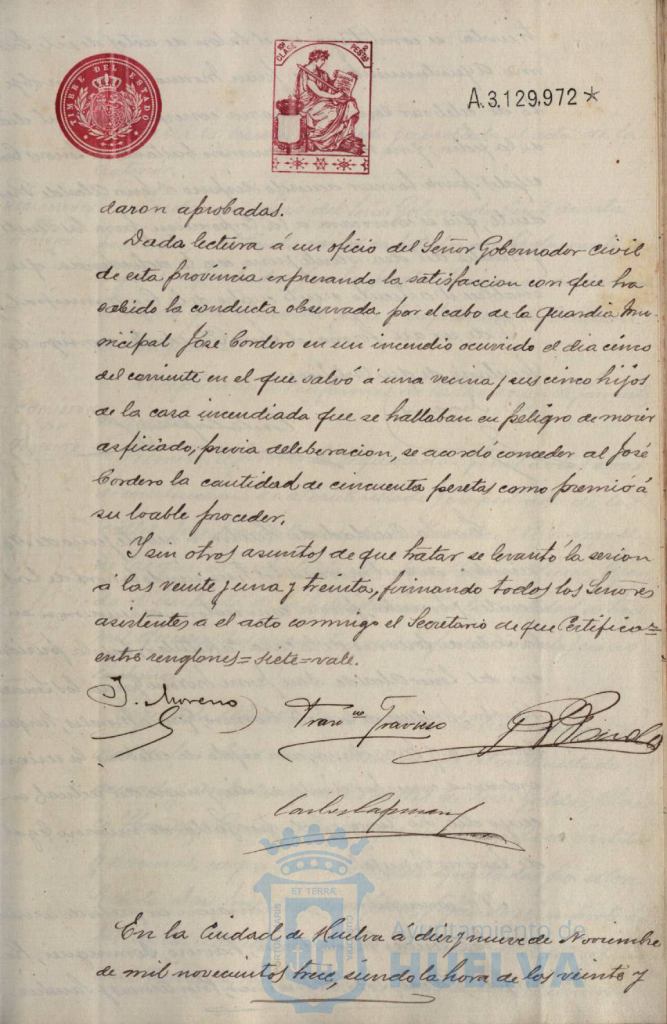 TIMBRE DEL ESTADO
10ª CLASE 2 PESETAS
A.3.129.972*
daron aprobadas.
Dada lectura á un oficio del Señor Gobernador civil
de esta provincia expresando la satisfaccion con que ha
sabido la conducta observada por el cabo de la guardia Mu-
nicipal José Cordero en un incendio ocurrido el dia cinco
del corriente en el que salvó á una vecina y sus cinco hijos
de la casa incendiada que se hallaban en peligro de morir
asficiado, previa deleberacion, se acordó conceder al José
Cordero la cantidad de cincuenta pesetas como premio á
su loable proceder.
Y sin otros asuntos de que tratar se levantó la sesion
á las veinte y una y treinta, firmando todos los Señores
asistentes a el acto conmigo el Secretario de que Certifico=
entre renglones=siete=vale.
J. Moreno
Franco Travieso
Carlos
ET TERRÆ
Ayuntamiento de
HUELVA
En la Ciudad de Huelva á diez y nueve de Noviembre
de mil novecientos trece, siendo la hora de las veinte y